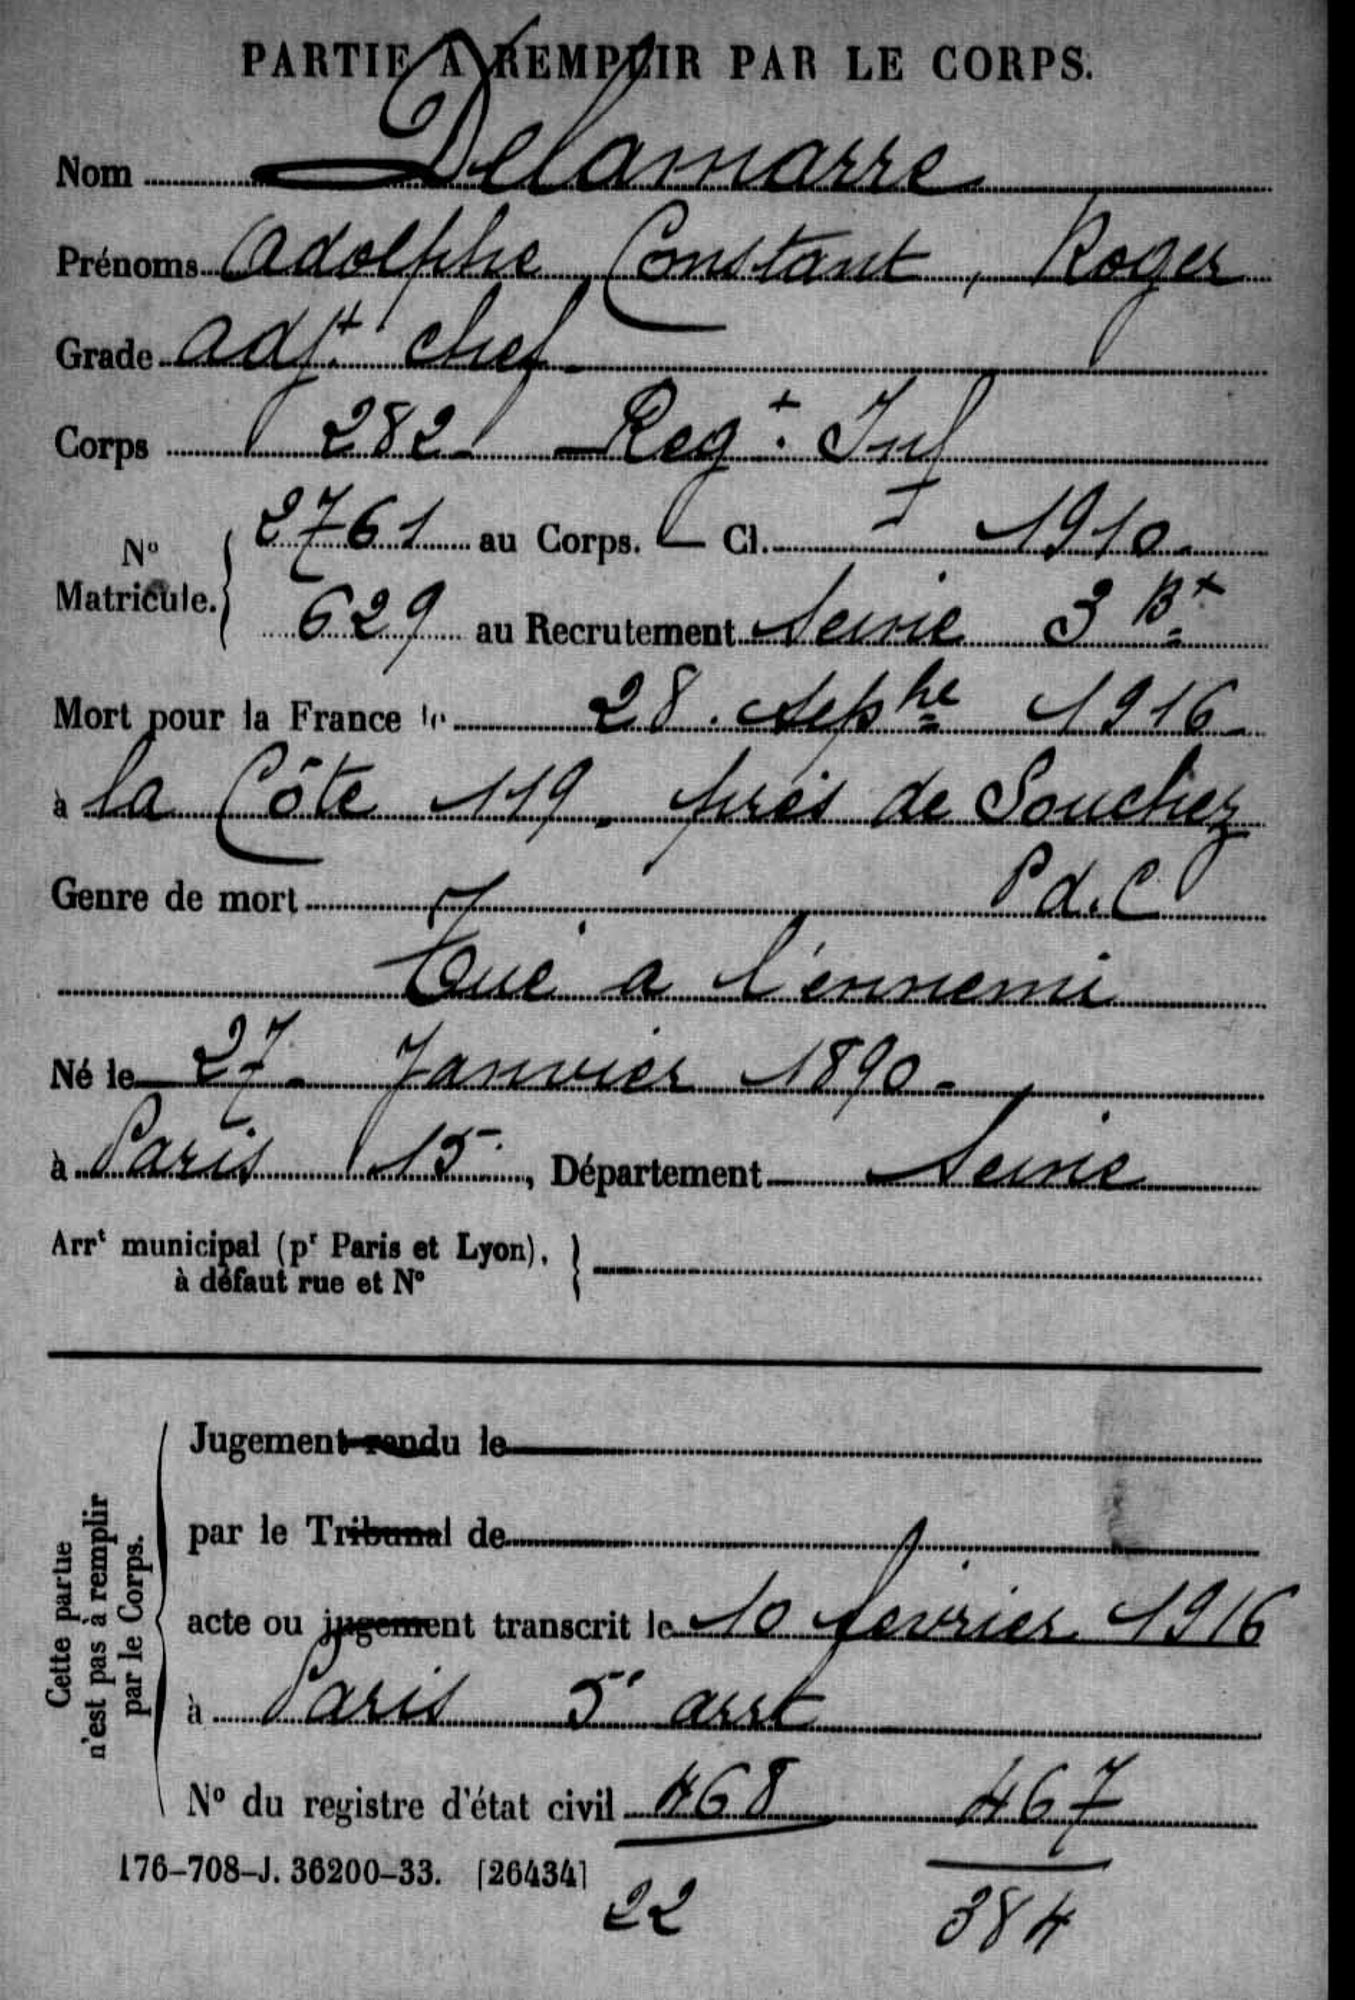 PARTIE A REMPLIR PAR LE CORPS.
Nom Delamarre
Prénoms Adolphe Constant, Roger
Grade adjt chef
Corps 282 Regt Inf
No Matricule. 2761 au Corps. Cl. 1910
629 au Recrutement Seine 3 Bt
Mort pour la France le 28 Sepbre 1916
à la Côte 119 près de Souchez
P d. C
Genre de mort
Tué a l'ennemi
Né le 27 Janvier 1890
à Paris 15, Département Seine
Arrt municipal (pr Paris et Lyon),
à défaut rue et No
Cette partie
n'est pas à remplir
par le Corps.
Jugement rendu le
par le Tribunal de
acte ou jugement transcrit le 10 février 1916
à Paris 5 arrt
No du registre d'état civil 468 467
176-708-J. 36200-33. [26434]
22 384